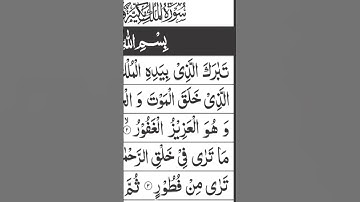 سُوْرَةُ الْمُلْكِ مَكِّيَّةٌ
بِسْمِ اللّٰهِ
تَبٰرَكَ الَّذِیْ بِیَدِهِ الْمُلْ
الَّذِیْ خَلَقَ الْمَوْتَ وَ الْحَ
وَ هُوَ الْعَزِیْزُ الْغَفُوْرُ ۲
مَا تَرٰی فِیْ خَلْقِ الرَّحْمٰ
تَرٰی مِنْ فُطُوْرٍ ۳ ثُمَّ